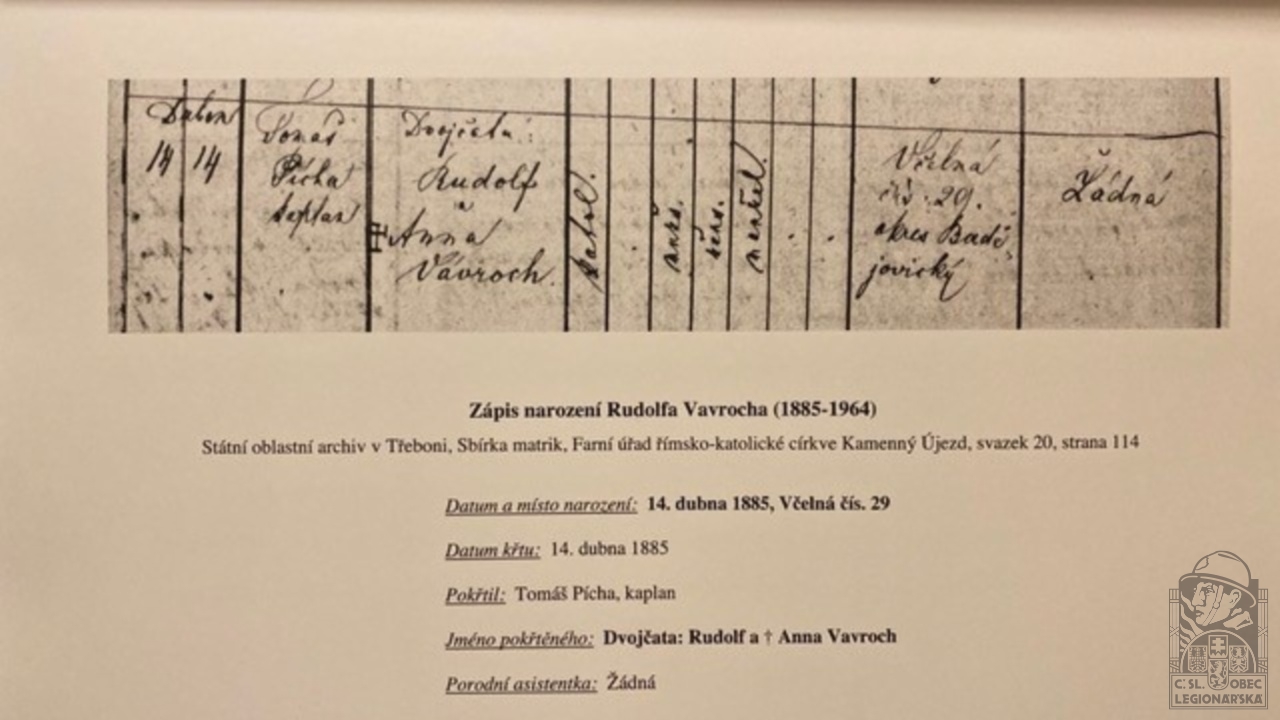 Duben
14 14
Tomáš
Pícha
kaplan
Dvojčata:
Rudolf
a
Anna
Vavroch.
katol.
mužs.
žens.
manžel.
Včelná
čís. 29.
okres Budě
jovický
Žádná
Zápis narození Rudolfa Vavrocha (1885-1964)
Státní oblastní archiv v Třeboni, Sbírka matrik, Farní úřad římsko-katolické církve Kamenný Újezd, svazek 20, strana 114
Datum a místo narození: 14. dubna 1885, Včelná čís. 29
Datum křtu: 14. dubna 1885
Pokřtil: Tomáš Pícha, kaplan
Jméno pokřtěného: Dvojčata: Rudolf a † Anna Vavroch
Porodní asistentka: Žádná
Č. SL. OBEC
LEGIONÁŘSKÁ